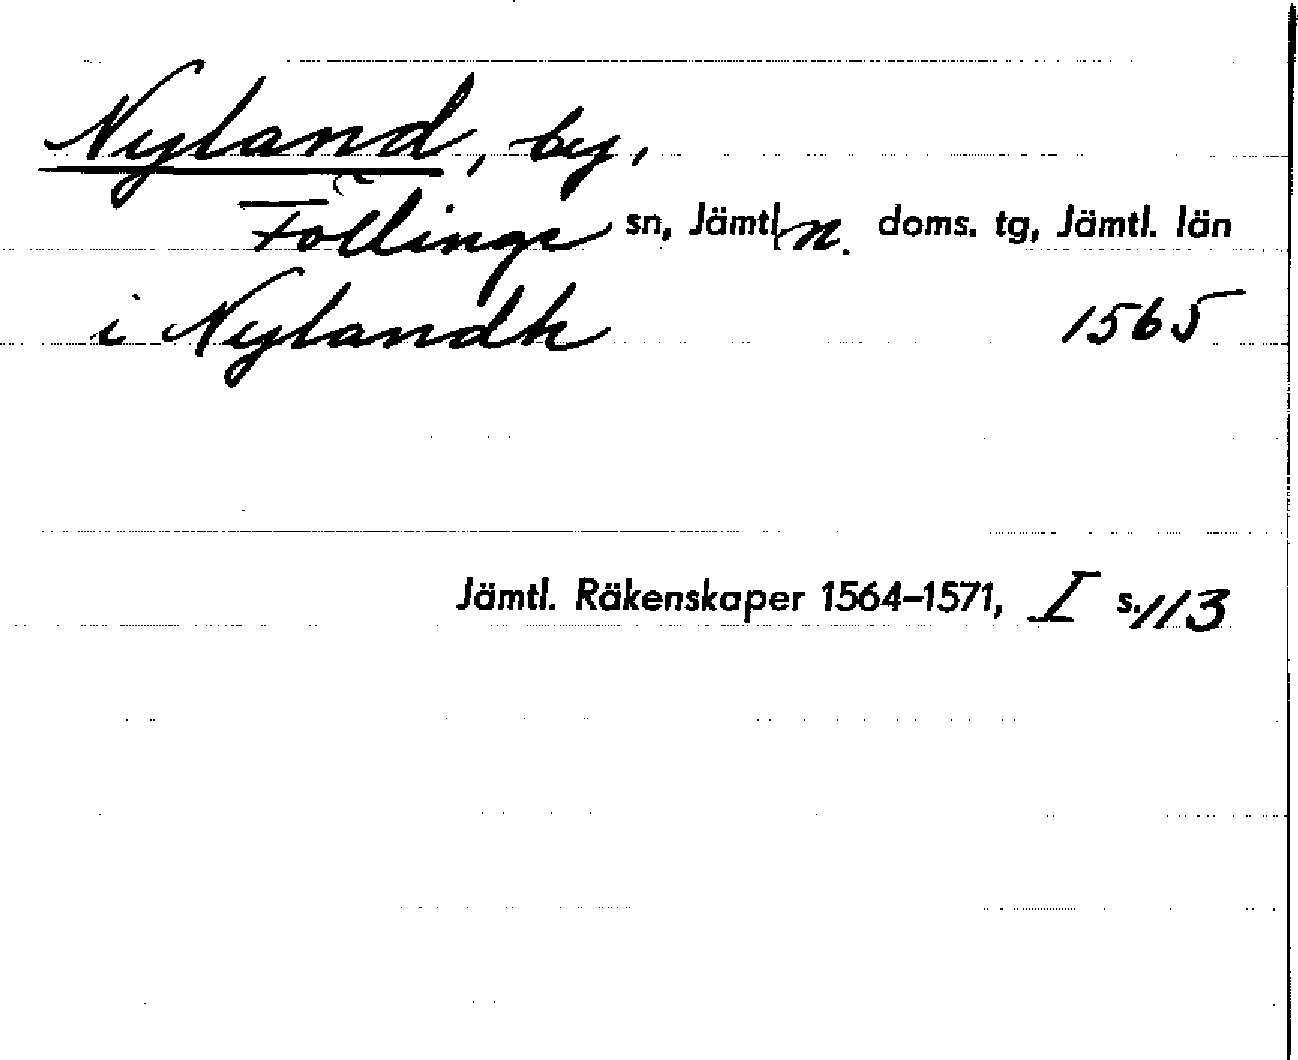 Nyland, by,
Föllinge sn, Jämtl. n. doms. tg, Jämtl. län
i Nylandh 1565
Jämtl. Räkenskaper 1564–1571, I s. 113